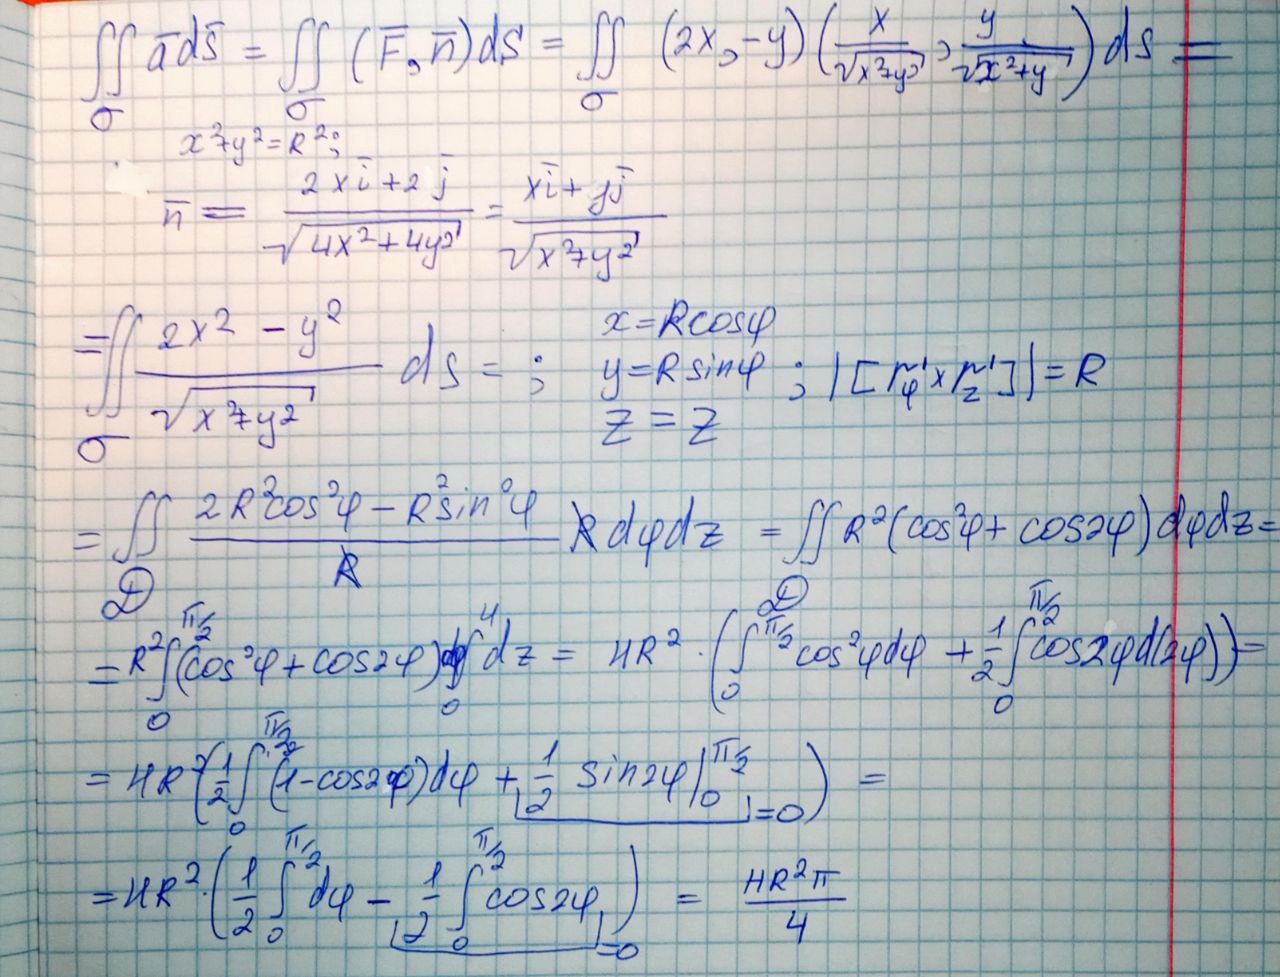 ∬_σ a̅ds̅ = ∬_σ (F̅, n̅)ds = ∬_σ (2x, -y)(x/√(x²+y²), y/√(x²+y))ds =
x²+y²=R²;
n̅ = (2xi̅+2j̅)/√(4x²+4y²) = (xi̅+yj̅)/√(x²+y²)
= ∬_σ (2x² - y²)/√(x²+y²) ds = ; x=Rcosφ
y=Rsinφ ; |[r'_φ × r'_z]| = R
z = z
= ∬_D (2R²cos²φ - R²sin²φ)/R R dφdz = ∬_D R²(cos²φ + cos2φ)dφdz =
= R² ∫_0^{π/2} (cos²φ + cos2φ)dφ ∫_0^4 dz = 4R² · (∫_0^{π/2} cos²φdφ + 1/2 ∫_0^{π/2} cos2φd(2φ)) =
= 4R² (1/2 ∫_0^{π/2} (1-cos2φ)dφ + 1/2 sin2φ|_0^{π/2} =0) =
= 4R² · (1/2 ∫_0^{π/2} dφ - 1/2 ∫_0^{π/2} cos2φ =0) = 4R²π/4